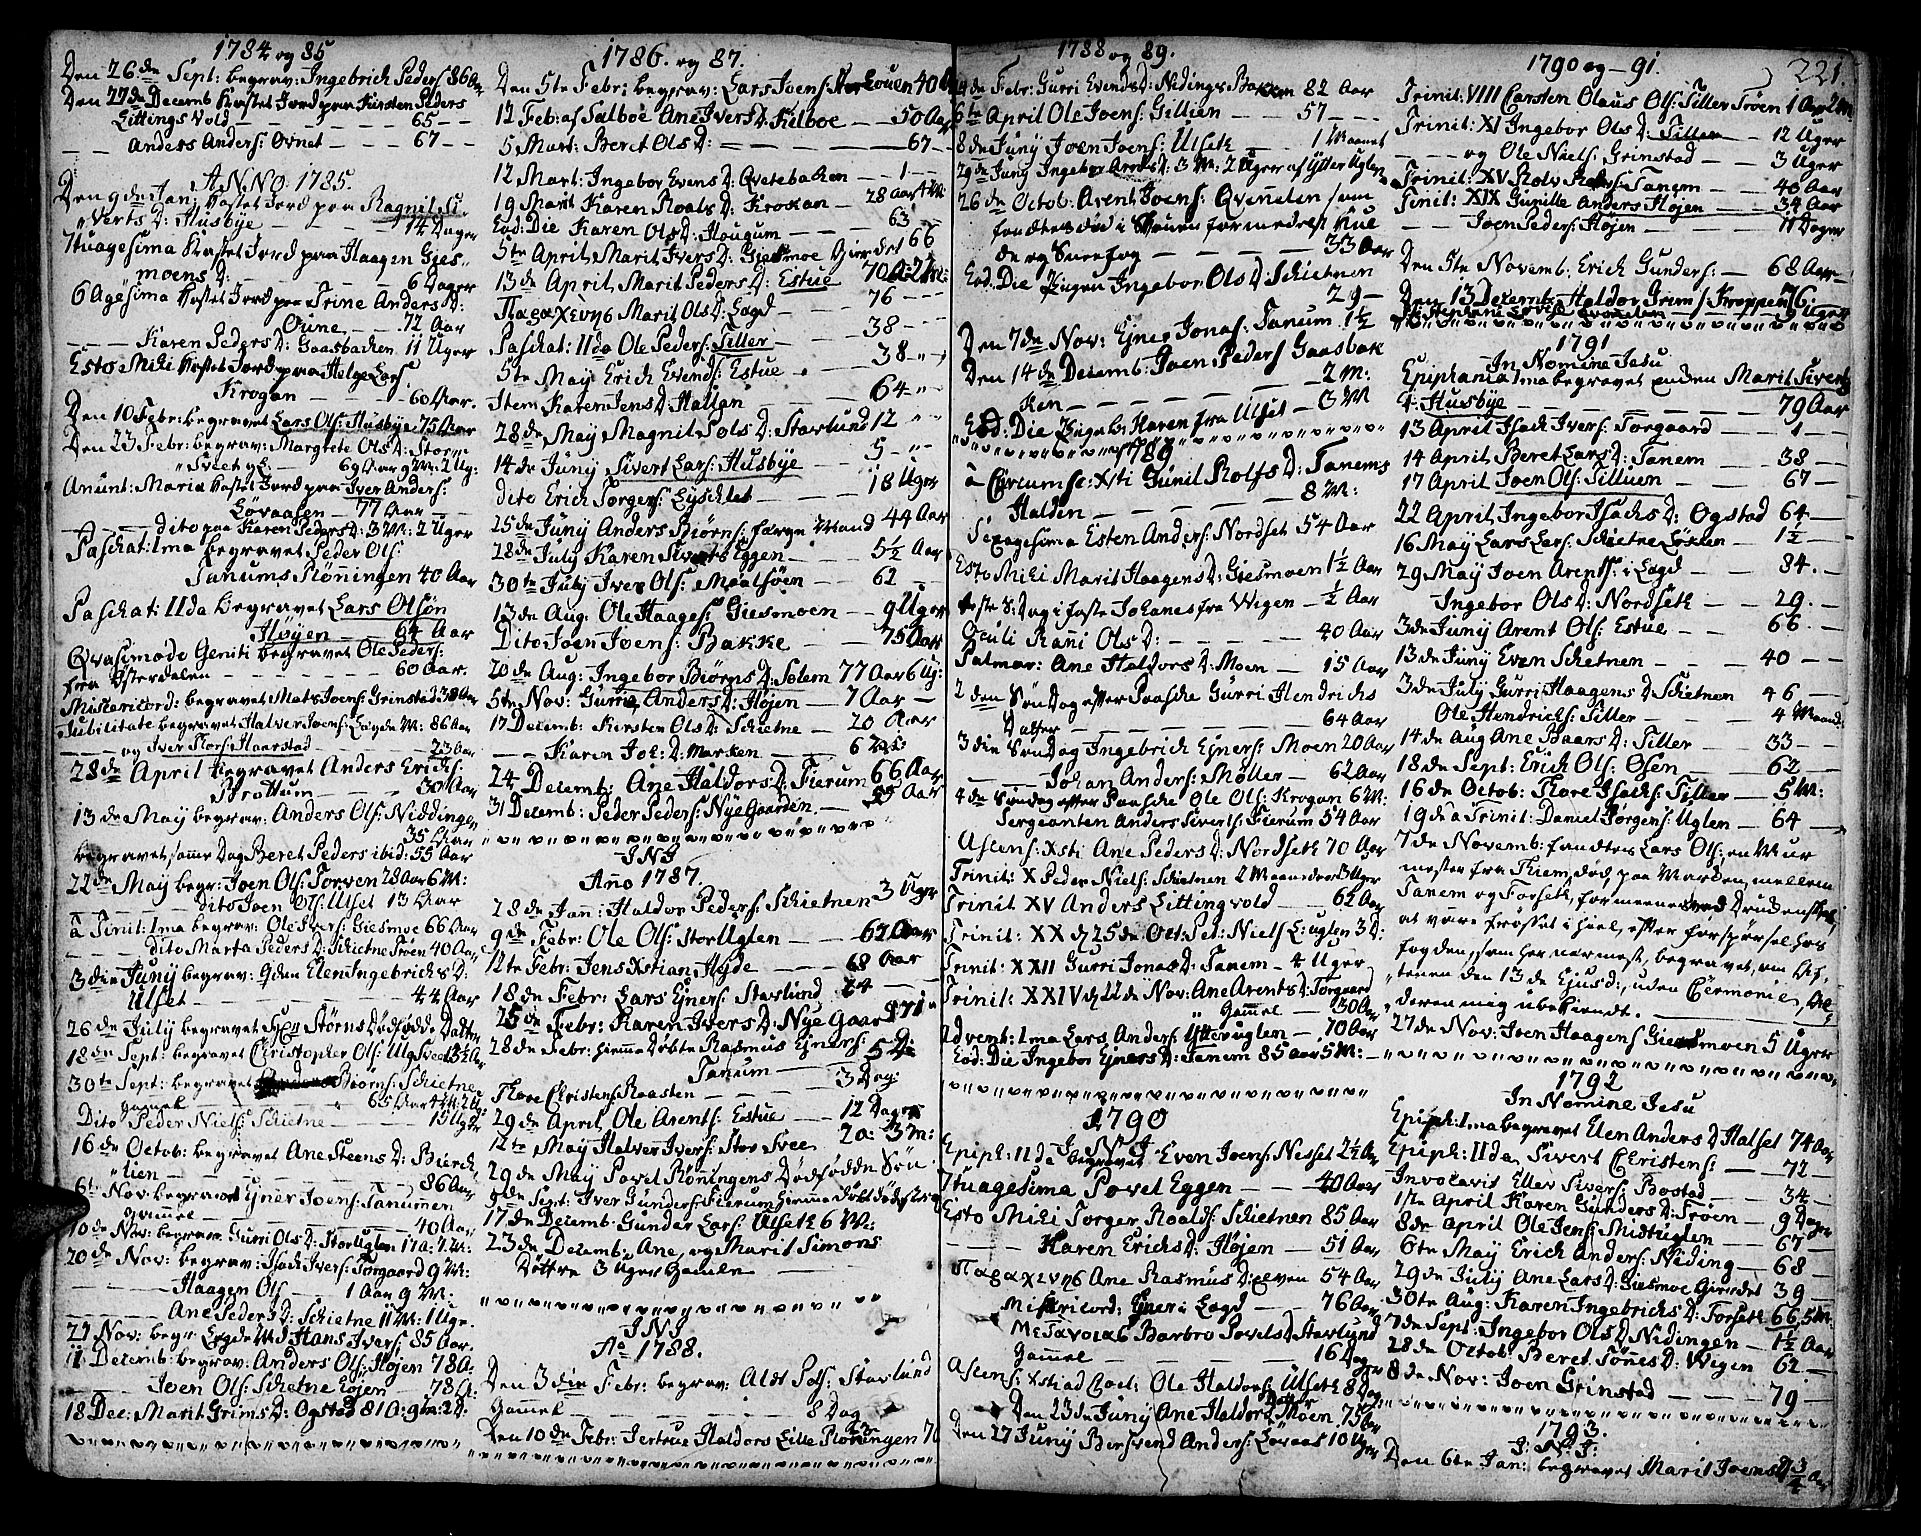 1784 og 85
Den 26de Sept: begrav: Ingebrich Peders 86 Aar
Den 27de Decemb kastet Jord paa Kirsten Peders
Littings Vold — 65 —
Anders Anders: Ovnet — 67 —
ANNO 1785.
Den 9de Jan: kastet Jord paa Magnil Si
verts D: Husbye — 14 Dager
7tuagesima kastet Jord paa Haagen Gies
moens D: — 6 Dager
6 Agesima kastet Jord paa Trine Anders D:
Oune — 72 Aar
Karen Peders D: Gaasbacken 11 Uger
Esto Mihi kastet Jord paa Helge Lars
Krogan — 60 Aar.
Den 10 Febr: begravet Lars Ols: Husbye 75 Aar
Den 23 Febr: begrav: Margrete Ols D: Storm
Sveet gl. — 69 Aar 9 M: 2 Ug:
Anunt: Maria kastet Jord paa Iver Anders:
Løvaasen — 77 Aar
Dito paa Karen Peders D: 3 M: 2 Uger
Paschat: Ima begravet Peder Ols:
Tanums Rønningen 40 Aar
Paschat: IIda begravet Lars Olsøn
Høyen — 64 Aar
Qvasimodo Geniti begravet Ole Peders:
fra Østerdalen — 60 Aar.
Misericord: begravet Mats Joens: Grinstad 38 Aar
Jubilate begravet Halver Joens: Løgde M: 86 Aar
og Iver Rors: Haarstad — 23 Aar
28de April begravet Anders Erichs:
Brottum — 30 Aar
13 de May begrav: Anders Ols: Niddingen
35 Aar
begravet samme Dag Beret Peders ibid: 55 Aar
22de May begr: Joen Ols: Torven 28 Aar 6 M:
Dito Joen Ols: Ulset 13 Aar
à Trinit: Ima begravet Ole Ivers: Giesmoe 66 Aar
Dito Marta Peders D: Schietne Trøen 40 Aar
3die Juny begrav: qden Elen Ingebrichs D:
Ulset — 44 Aar
26 de July begravet Størns Dødfødde Datter
18de Sept: begravet Christopher Ols:
30te Sept: begravet Biørns: Schietne
gamel — 65 Aar 4 M: 2 Ug:
Dito Peder Niels: Schietne — 15 Uger
16 de Octob: begravet Ane Steens D: Bierck
lien — 86 Aar
6te Nov: begravet Ejner Joens: Tanumen
gammel — 40 Aar
10 de Nov: begrav: Gurri Ols D: Stor Uglen 17 A: 7 M:
20 de Nov: begrav: Isach Ivers: Torgaard 9 M:
Haagen Ols — 1 Aar 9 M:
Ane Peders D: Schietne 11 M: 1 Uge.
27 Nov: begr: Hans Ivers 85 Aar.
11 Decemb: begrav: Anders Ols: Høyen 78 A.
Joen Ols: Schietne Løyen — 78 A:
18 Dec: Marit Grims D: Ogstad 81 A: 9 M: 2 D:
1786. og 87.
Den 5te Febr: begrav: Lars Joens: 40 Aar
12 Feb: af Sælboe Ane Ivers D: Kilboe — 50 Aar
5 Mart: Beret Ols D: — 67 —
12 Mart: Ingebor Evens D: Qvetebacken — 1 —
19 Marti Karen Roals D: Krokan — 28 Aar 4 M
Eod: Die Karen Ols D: Hougum — 63
5te April Marit Ivers D: Giesmoe Gierdet 66
13 de April Marit Peders D: Estue 70 A: 2 M:
Παρασχενης Marit Ols D: Løgd — 76 —
Paschat: IIda Ole Peders: Tiller — 38 —
5te May Erich Evends: Estue — 38 —
Item Karen Jens D: Hallan — 64 —
28 de May Magnil Sols D: Stavlund 12
14 de Juny Sivert Lars: Husbye — 5 —
dito Erich Torgers: Lysklet — 18 Uger
25 de Juny Anders Biørns: Færge Mand 44 Aar
28de July Karen Siverts Eggen — 5½ Aar
30te July Iver Ols: Maalsøen — 62 —
13 de Aug: Ole Haages: Giesmoen — 9 Uger
Dito Joen Joens: Backe — 75 Aar
20 de Aug: Ingebor Biørns D: Solem 77 Aar 6 Ug:
5te Nov: Gurrie Anders D: Høyen — 7 Aar —
17 Decemb: Kirsten Ols D: Schietne — 20 Aar
Karen Joe: D: Marken — 6
24 Decemb: Ane Haldors D: Fierum 66 Aar
31 Decemb: Peder Peders: Nye Gaarden — Aar
INJ
Año 1787.
28 de Jan: Haldor Peders: Schietnen 3 Uger
9 de Febr: Ole Ols: Stor Uglen — 62 Aar
12te Febr: Jens Xstian Hyde — 68 Aar
18 de Febr: Lars Ejners: Stavlund 24 —
25 de Febr: Karen Ivers D: Nye Gaar 71
28 de Febr: hiemme Døbte Rasmus Ejners: 5 D:
Tanum
Tore Christens: Raasten — 3 Dag:
29 de April Ole Arents: Estue — 12 Dager
12te May Halver Ivers: Stor Svee 2 A: 3 M:
29 de May Povel Rønningens Dødfødde Søn
9de Sept: Iver Gunders: Fierum hiemme Døbt
17 de Decemb: Gunder Lars: Ulseth 6 M:
23 de Decemb: Ane og Marit Simons
Døttre 3 Uger Gamle
INJ
Ao 1788.
Den 3die Febr: begrav: Aldt Pols: Stavlund
Gammel — 8 Dag
Den 10 de Febr: Jertrue Haldors Lille Rønningen 70
1788 og 89.
de Febr: Gurri Evends D: Nidings Backen 82 Aar
6te April Ole Joens: Gillien — 57 —
8de Juny Joen Joens: Ulseth — 1 Maanet
29de Juny Ingebor Arents D: 3 M: 2 Uger af Ytter Uglen
26 de Octob: Arent Joens: Qvenelen som
fandtes død i Skouen formedelst Kul
de og Sneefog — 33 Aar
Eod: Die Pigen Ingebor Ols D: Schietnen
29 —
Den 7de Nov: Ejner Jonas: Tanum 1½
Den 14 de Decemb: Joen Peders Gaasbak
ken — 2 M:
Eod: Die Pigeb: Karen fra Ulset — 3 M
1789
à Circumsc: Xsti Gunil Rolfs D: Tanems
Halden — 8 M:
Sexagesima Esten Anders: Nordset 54 Aar
Esto Mihi Marit Haagens D: Giesmoen 1½ Aar
1ste S: Dag i faste Johanes fra Wigen — ½ Aar
Oculi Rañi Ols D: — 40 Aar
Palmar: Ane Haldors D: Moen — 15 Aar
2 den Søndag efter Paaske Gurri Hendrichs
Datter — 64 Aar
3 die Søndag Ingebrich Ejners: Moen 20 Aar
Johan Anders: Møller — 62 Aar
4 de Søndag efter Paaske Ole Ols: Krogan 6 M:
Sergeanten Anders Siverts: Fierum 54 Aar
Ascens: Xsti Ane Peders D: Nordseth 70 Aar
Trinit: X Peder Niels: Schietnen 2 Maaneder 3 Uger
Trinit XV Anders Littingvold — 62 Aar
Trinit: XX d 25 de Oct: Ped: Niels: Euglen 3 D:
Trinit: XXII Gurri Jonas D: Tanem — 4 Uger
Trinit: XXIV d 22 de Nov: Ane Arents D: Torgaard
Gammel — 30 Aar
Advent: Ima Lars Anders: Ytteruglen — 70 Aar
Eod: Die Ingebor Ejners D: Tanem 85 Aar 5 M: —
1790
I N J
Epiph: IIda begravet Even Joens: Nesset 2½ Aar
7tuagesima Povel Eggen — 40 Aar
Esto Mihi Torger Roalds: Schietnen 85 Aar
Karen Erichs D: Høyen — 51 Aar
Παρασχενης Ane Rasmus D: Elven 54 Aar
Misericord: Ejner Løgd — 76 Aar
Μετανοιας Barbro Povels D: Stavlund
Gammel — 16 Dager
Ascens: Xsti ad Cael: Ole Haldors: Ulseth 8 Dag:
Den 23 de Juny Ane Haldors Datter Moen 75 Aar
Den 27 Juny Bersvend Anders: Løvaas 10 Uger
1790 og — 91.
221.
Trinit: VIII Carsten Olaus Ols: Tiller Trøen 1 Aar 2 M.
Trinit: XI Ingebor Ols D: Tiller — 12 Uger
og Ole Niels: Grinstad — 3 Uger
Trinit: XV Rolv Tanem — 40 Aar
Trinit: XIX Gunille Anders Høyen — 34 Aar
Joen Peders: Høyen — 11 Dager
Den 5te Novemb: Erich Gunders: — 68 Aar
Den 13 Decemb: Haldor Grims: Kroppen 76:
1791
In Nomine Jesu
Epiphania Ima begravet enken Marit Siverts
D: Husbye — 79 Aar
13 April Isach Ivers: Torgaard — 1 —
14 April Beret Lars D: Tanem — 38 —
17 April Joen Ols: Tilluen — 67 —
22 April Ingebor Isachs D: Ogstad 64 —
16 May Lars Lars: Schietne Løkken — 1½ —
29 May Joen Arents: i Løgd — 84. —
Ingebor Ols D: Nordseth — 29. —
3de Juny Arent Ols: Estue — 66 —
13 de Juny Even Schetnen — 40 —
3de July Gurri Haagens D: Schietnen 46 —
Ole Hendrichs: Tiller — 4 Maand:
14 de Aug Ane Baars D: Tiller — 33 —
18 de Sept: Erich Ols: Øsen — 62 —
16 de Octob: Tore Isachs: Tiller — 5 M:
19 de à Trinit: Daniel Jørgens: Uglen — 64 —
7 de Novemb: fandtes Lars Ols: en Mur
mester fra Tiem, død, paa Marken, mellem
Tanem og Forseth, formeenes ved Drukenskab
at være frosset i hiel, efter forspørsel hos
fogden, som her nærmest, begravet, om Af
tenen den 13 de Ejusd:, uden Cermonie, Al
deren mig ubekiendt.
27 de Nov: Joen Haagens: Giesmoen 5 Uger
1792
In Nomine Jesu
Epiph: Ima begravet Elen Anders D: Halset 74 Aar
Epiph: IIda Sivert Christens: — 72 —
Invocavit Eller Sivers: Bostad — 34 —
1te April Karen Gunders D: Trøen — 9 Dager
8de April Ole Jens: Midtuglen — 67 —
6te May Erich Anders: Niding — 68 —
29 de July Ane Lars D: Giesmoe Gierdet 39 —
30te Aug: Karen Ingebrichs D: Forseth 66, 5 M:
7de Sept: Ingebor Ols D: Nidingen — 1½ Aar
28 de Octob: Beret Tønes D: Wigen — 62 —
8 de Nov: Joen Grinstad — 79 —
1793.
J: N: J:
Den 6te Jan: begravet Marit Joens D ¾ Aar